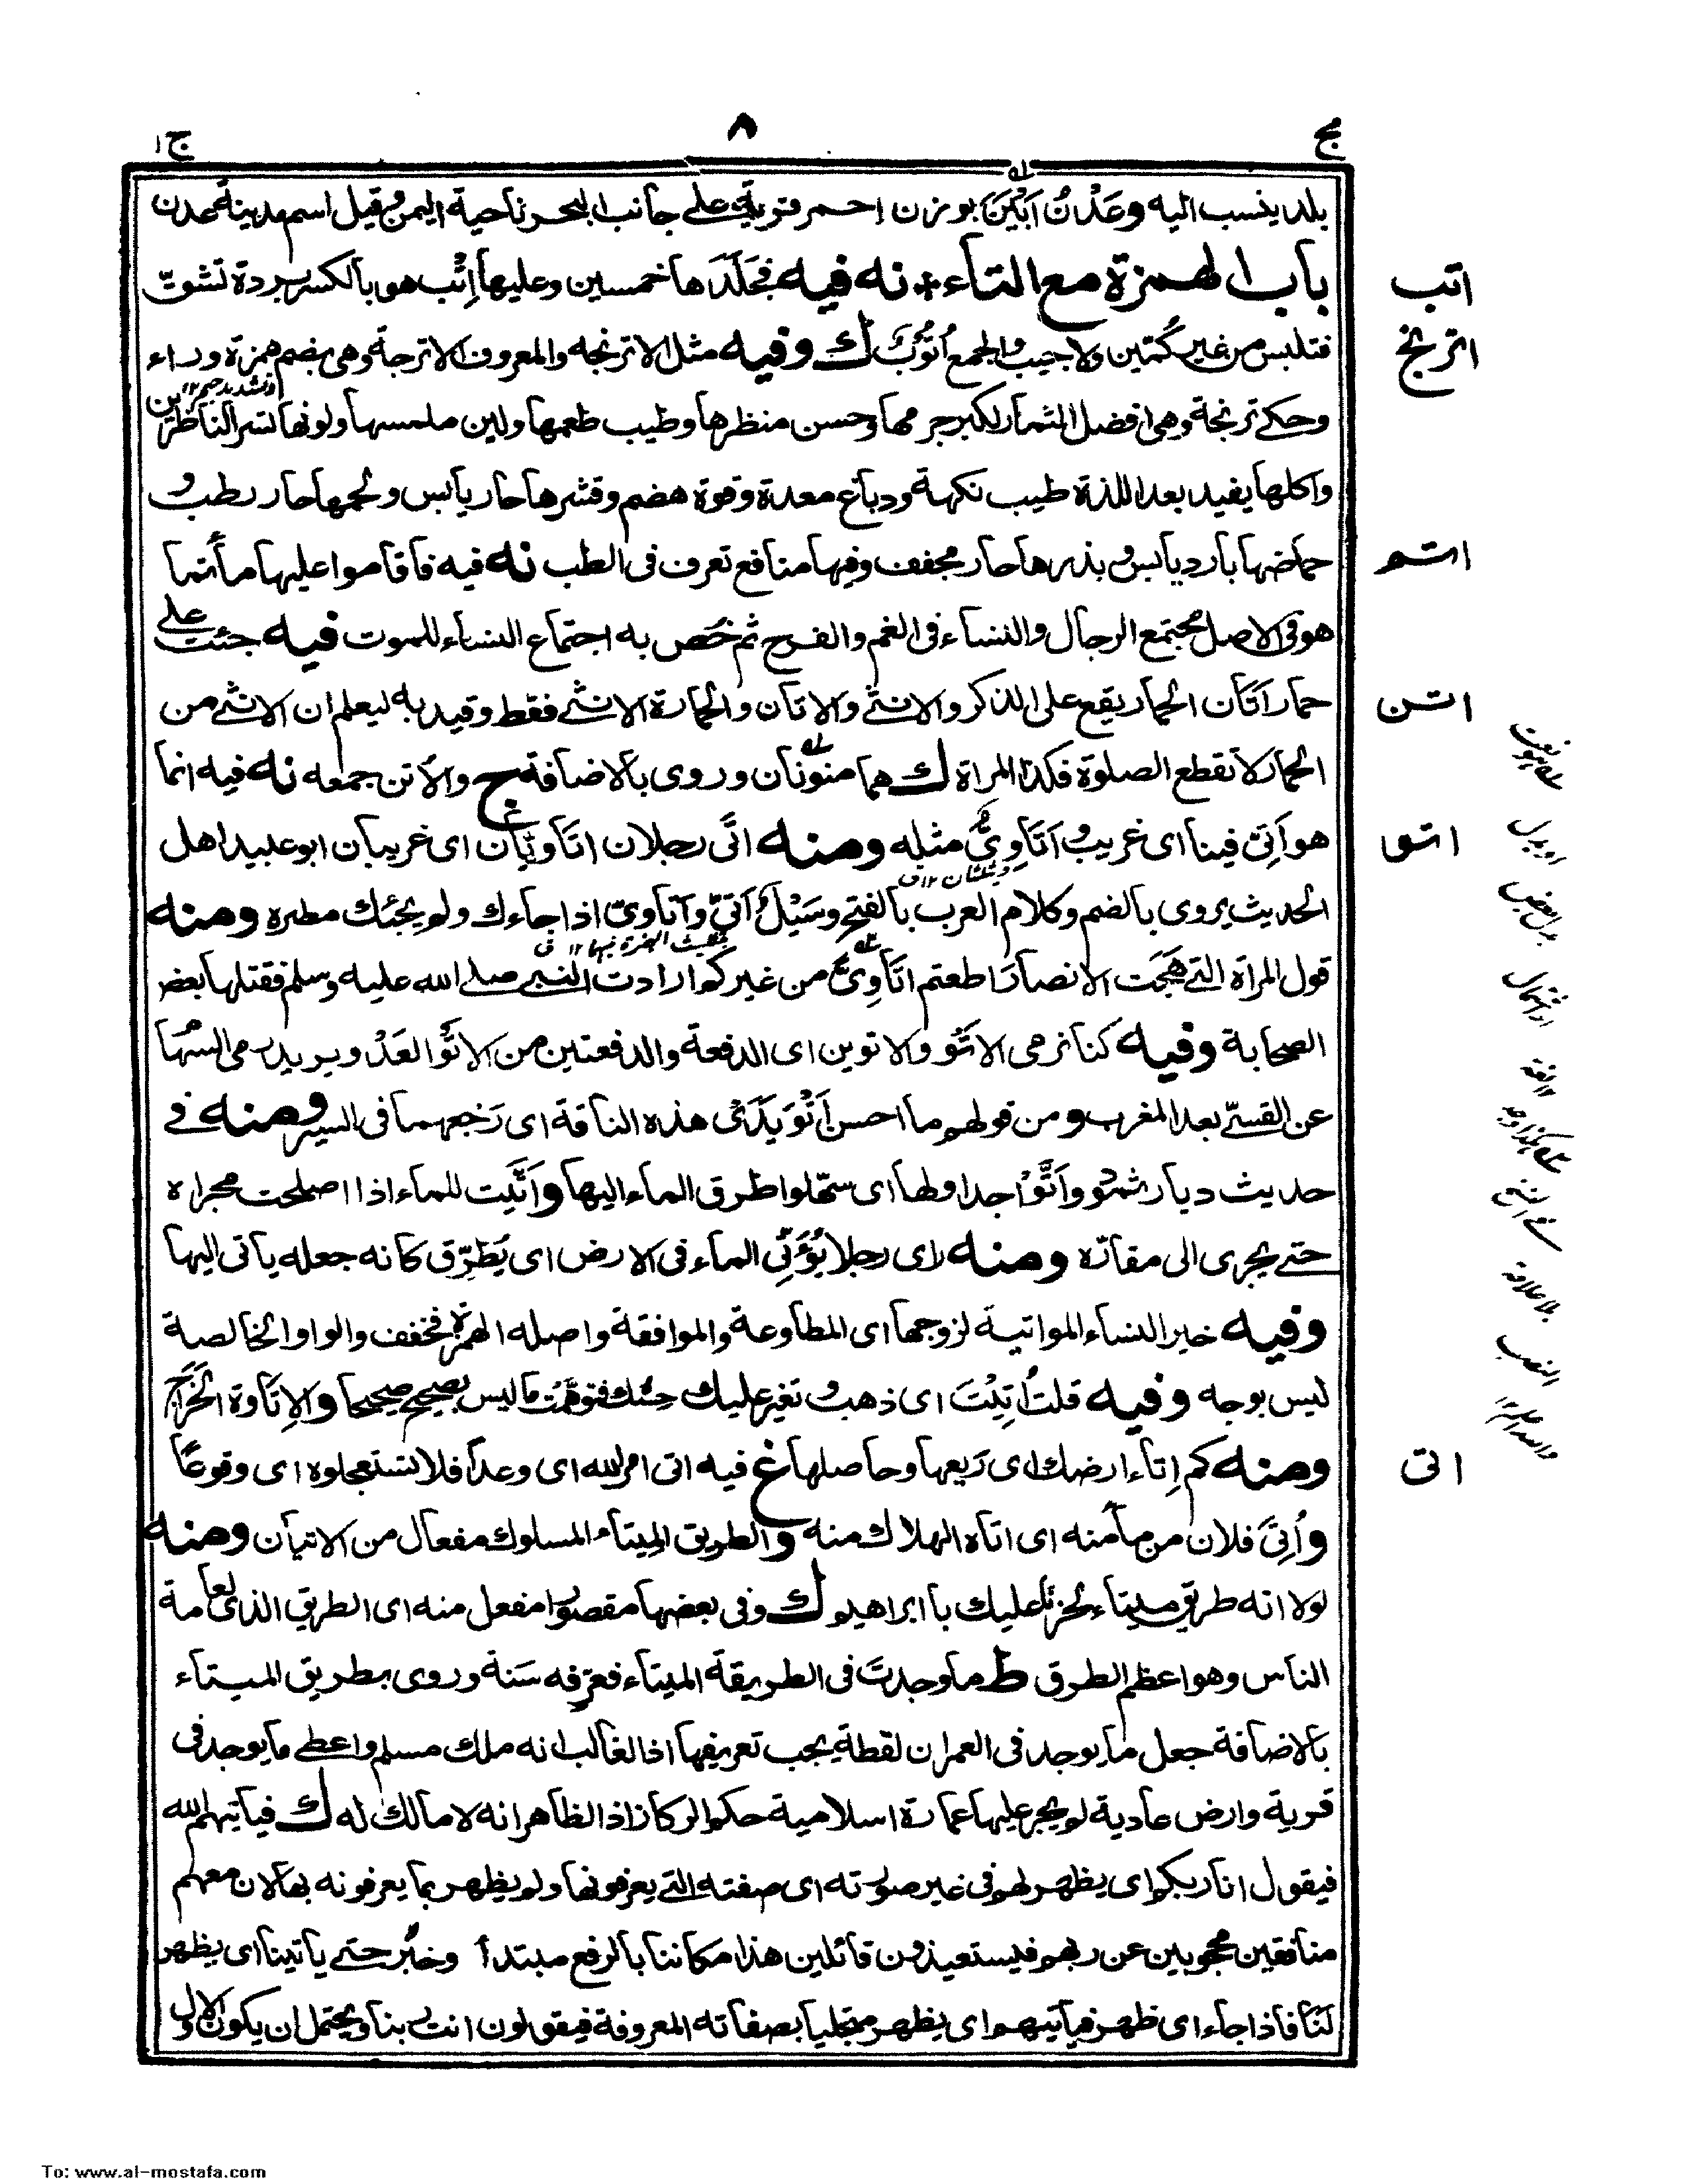 مج ٨ ج ١
بلد ينسب اليه وعَدْنُ اَبْيَنَ بوزن احمر قرية على جانب البحر ناحية اليمن وقيل اسم مدينة عدن
اتب
باب الهمزة مع التاء * نه فيه فجَلَدَها خمسين وعليها اِتْب هو بالكسر بردة تشقّ
اترنج
فتلبس من غير كُمّين ولا جيب والجمع أتُوُب ك وفيه مثل الاترنجه والمعروف الاترجة وهى بضم همزة وراء
وتشديد جيم ١٢
وحكى ترنجة وهى افضل الثمار لكبر جرمها وحسن منظرها وطيب طعمها ولين ملمسها ولونها تسر الناظرين
واكلها يفيد بعد اللذة طيب نكهة ودباغ معدة وقوة هضم وقشرها حار يابس ولحمها حار رطب و
اتم
حماضها بارد يابس وبذرها حار مجفف وفيها منافع تعرف فى الطب نه فيه فاقاموا عليها مأتما
هو فى الاصل مجتمع الرجال والنساء فى الغم والفرح ثم خُص به اجتماع النساء للموت فيه جئت على
اتن
حمار اَتَان الحمار يقع على الذكر والانثى والاتان والحمارة الانثى فقط وقيد به ليعلم ان الانثى من
الحمار لا تقطع الصلوة فكذا المراة ك هما منونان وروى بالاضافة ج والأتن جمعه نه فيه انما
اتى
هو اَتِىّ فينا اى غريب و اَتَاوِىٌّ مثله ومنه انَّى رجلان اتاويان اى غريبان ابو عبيد اهل
الحديث يروى بالضم وكلام العرب بالفتح وسَيْلٌ اَتِىّ وأتاوىّ اذا جاءك ولم يجئك مطره ومنه
قول المراة التى هَجَت الانصار اطعتم اتَاوِىَّ من غيركم ارادت النبى صلى الله عليه وسلم فقتلها بعض
الصحابة وفيه كنا نرمى الاَتْو والاتوين اى الدفعة والدفعتين من الاَتْو العَدْو يريد رمى السهام
عن القسىّ بعد المغرب ومن قولهم ما احسن اَتْوَ يَدَىْ هذه الناقة اى رَجعهما فى السير ومنه فى
حديث ديار ثمود وأتَّوْا جداولها اى سهّلوا طرق الماء اليها وأتَّيت للماء اذا اصلحت مجراه
حتى يجرى الى مقارّه ومنه راى رجلا يُؤَتِّى الماء فى الارض اى يُطَرِّق كانه جعله ياتى اليها
وفيه خير النساء المواتية لزوجها اى المطاوعة والموافقة واصله الهمزة فخفف والواو الخالصة
ليس بوجه وفيه قلت اُتِيْتَ اى ذهبت و تغير عليك حِسّك فتوهمت ما ليس بصحيح صحيحا والاِتاوة الخَرَاج
اتى
ومنه كم اِتاء ارضك اى رَيعها وحاصلها غ فيه اتى امر الله اى وعداً فلا تستعجلوه اى وقوعًا
وأُتِىَ فلان من مأمنه اى اتاه الهلاك منه والطريق المِيتاء المسلوك مفعال من الاتيان ومنه
لولا انه طريق ميتاء لحزنا عليك يا ابراهيم ك وفى بعضها مقصورا مفعل منه اى الطريق الذى لعامة
الناس وهو اعظم الطرق ط ما وجدتَ فى الطريقة الميتاء فعرّفه سَنة وروى بطريق الميتاء
بالاضافة جعل ما يوجد فى العمران لقطة يجب تعريفها اذ الغالب انه ملك مسلم واعطى ما يوجد فى
قرية وارض عادية لم يجر عليها عمارة اسلامية حكم الركاز اذ الظاهر انه لا مالك له ك فياتيهم الله
فيقول انا ربكم اى يظهر لهم فى غير صورته اى صفته التى يعرفونها ولم يظهر بما يعرفونه بها لان معهم
منافقين محجوبين عن ربهم فيستعيذون قائلين هذا مكاننا بالرفع مبتدأ وخبر حتى ياتينا اى يظهر
لنا فاذا جاء اى ظهر فيأتيهم اى يظهر متجليا بصفاته المعروفة فيقولون انت ربنا ويحتمل ان يكون الاول
To: www.al-mostafa.com